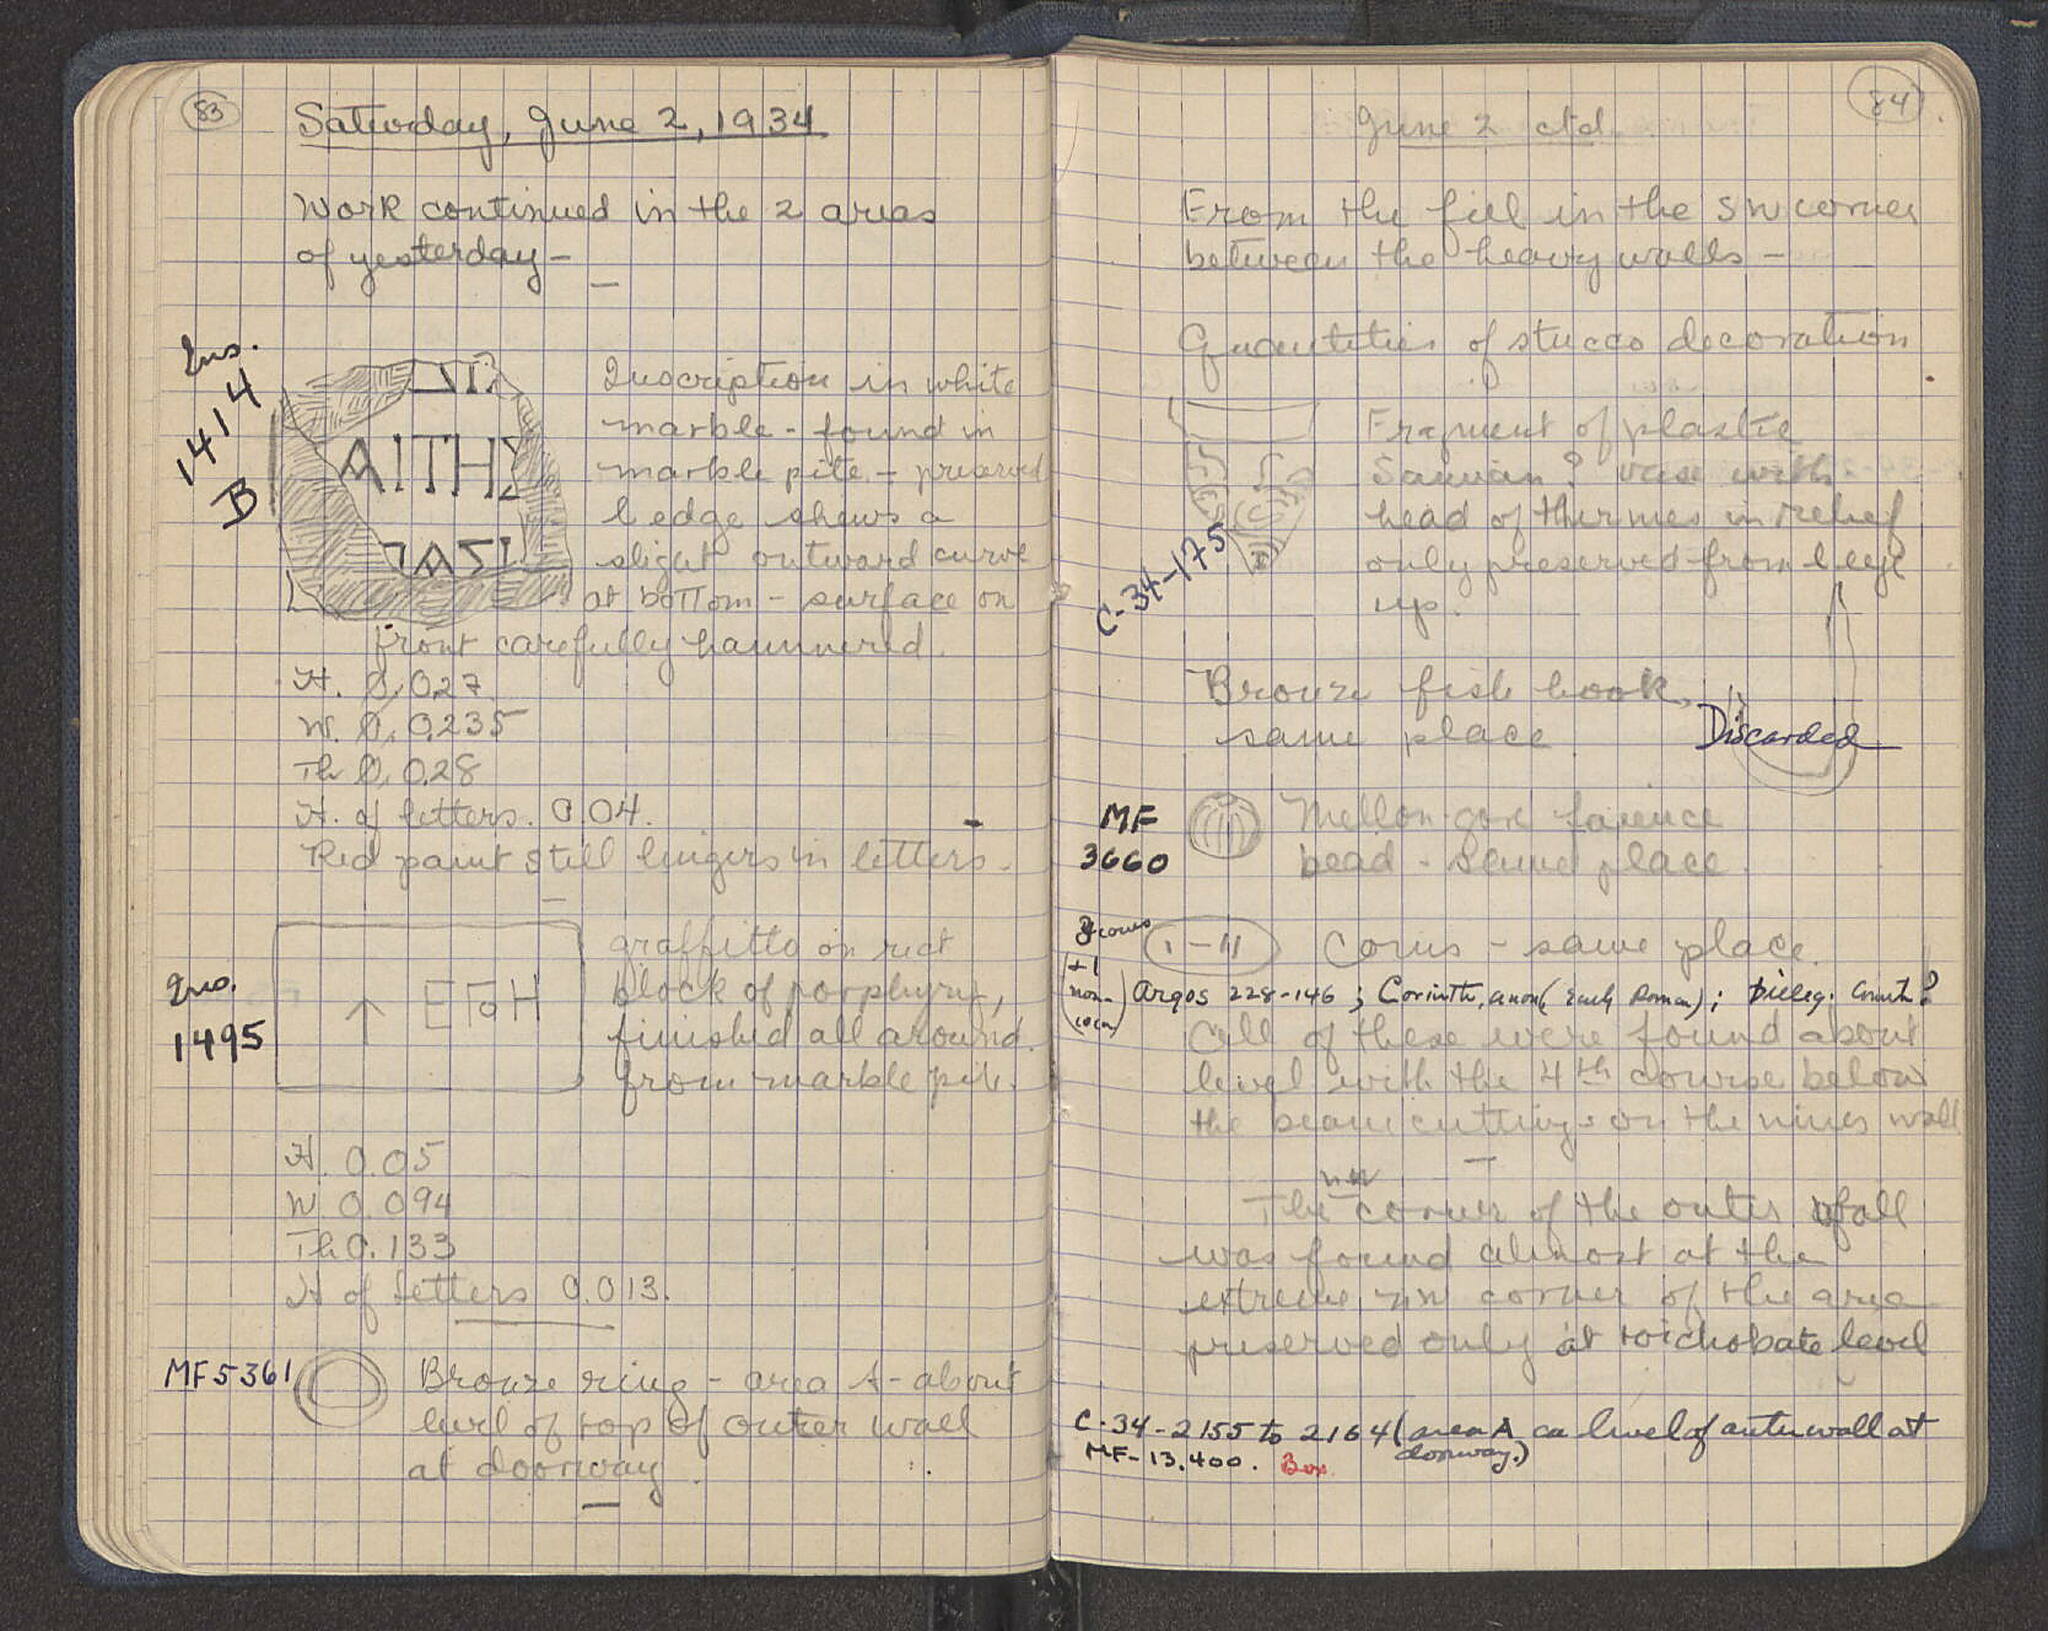 83
Saturday, June 2, 1934
Work continued in the 2 areas
of yesterday –
Ins.
1414
B
ΑΙΤΗΣ
ΟΑΣΙ
Inscription in white
marble - found in
marble pile - preserved
l edge shows a
slight outward curve
at bottom - surface on
front carefully hammered.
H. 0.027
W. 0.0235
Th 0.028
H. of letters. 0.04.
Red paint still lingers in letters.
Ins.
1495
↑ ETOH
graffitto on rect
block of porphyry,
finished all around.
from marble pile.
H. 0.05
W 0.094
Th 0.133
H of letters 0.013.
MF5361
Bronze ring - area A - about
level of top of outer wall
at doorway
84
June 2 ctd.
From the fill in the SW corner
between the heavy walls –
Quantities of stucco decoration
C-34-175
Fragment of plastic
Samian? vase with
head of thermes in relief
only preserved from l eye
up.
Bronze fish hook,
same place
Discarded
MF
3660
Mellon-gore faience
bead - same place
coins
+1
non-
coin)
1-11
Coins - same place.
Argos 228-146; Corinth, anon (Early Roman); Corinth?
All of these were found about
level with the 4th course below
the beam cuttings on the inner wall
The NW corner of the outer wall
was found almost at the
extreme NW corner of the area
preserved only at toichobate level
C-34-2155 to 2164 (area A ca level of outer wall at
doorway.)
MF-13.400. Box